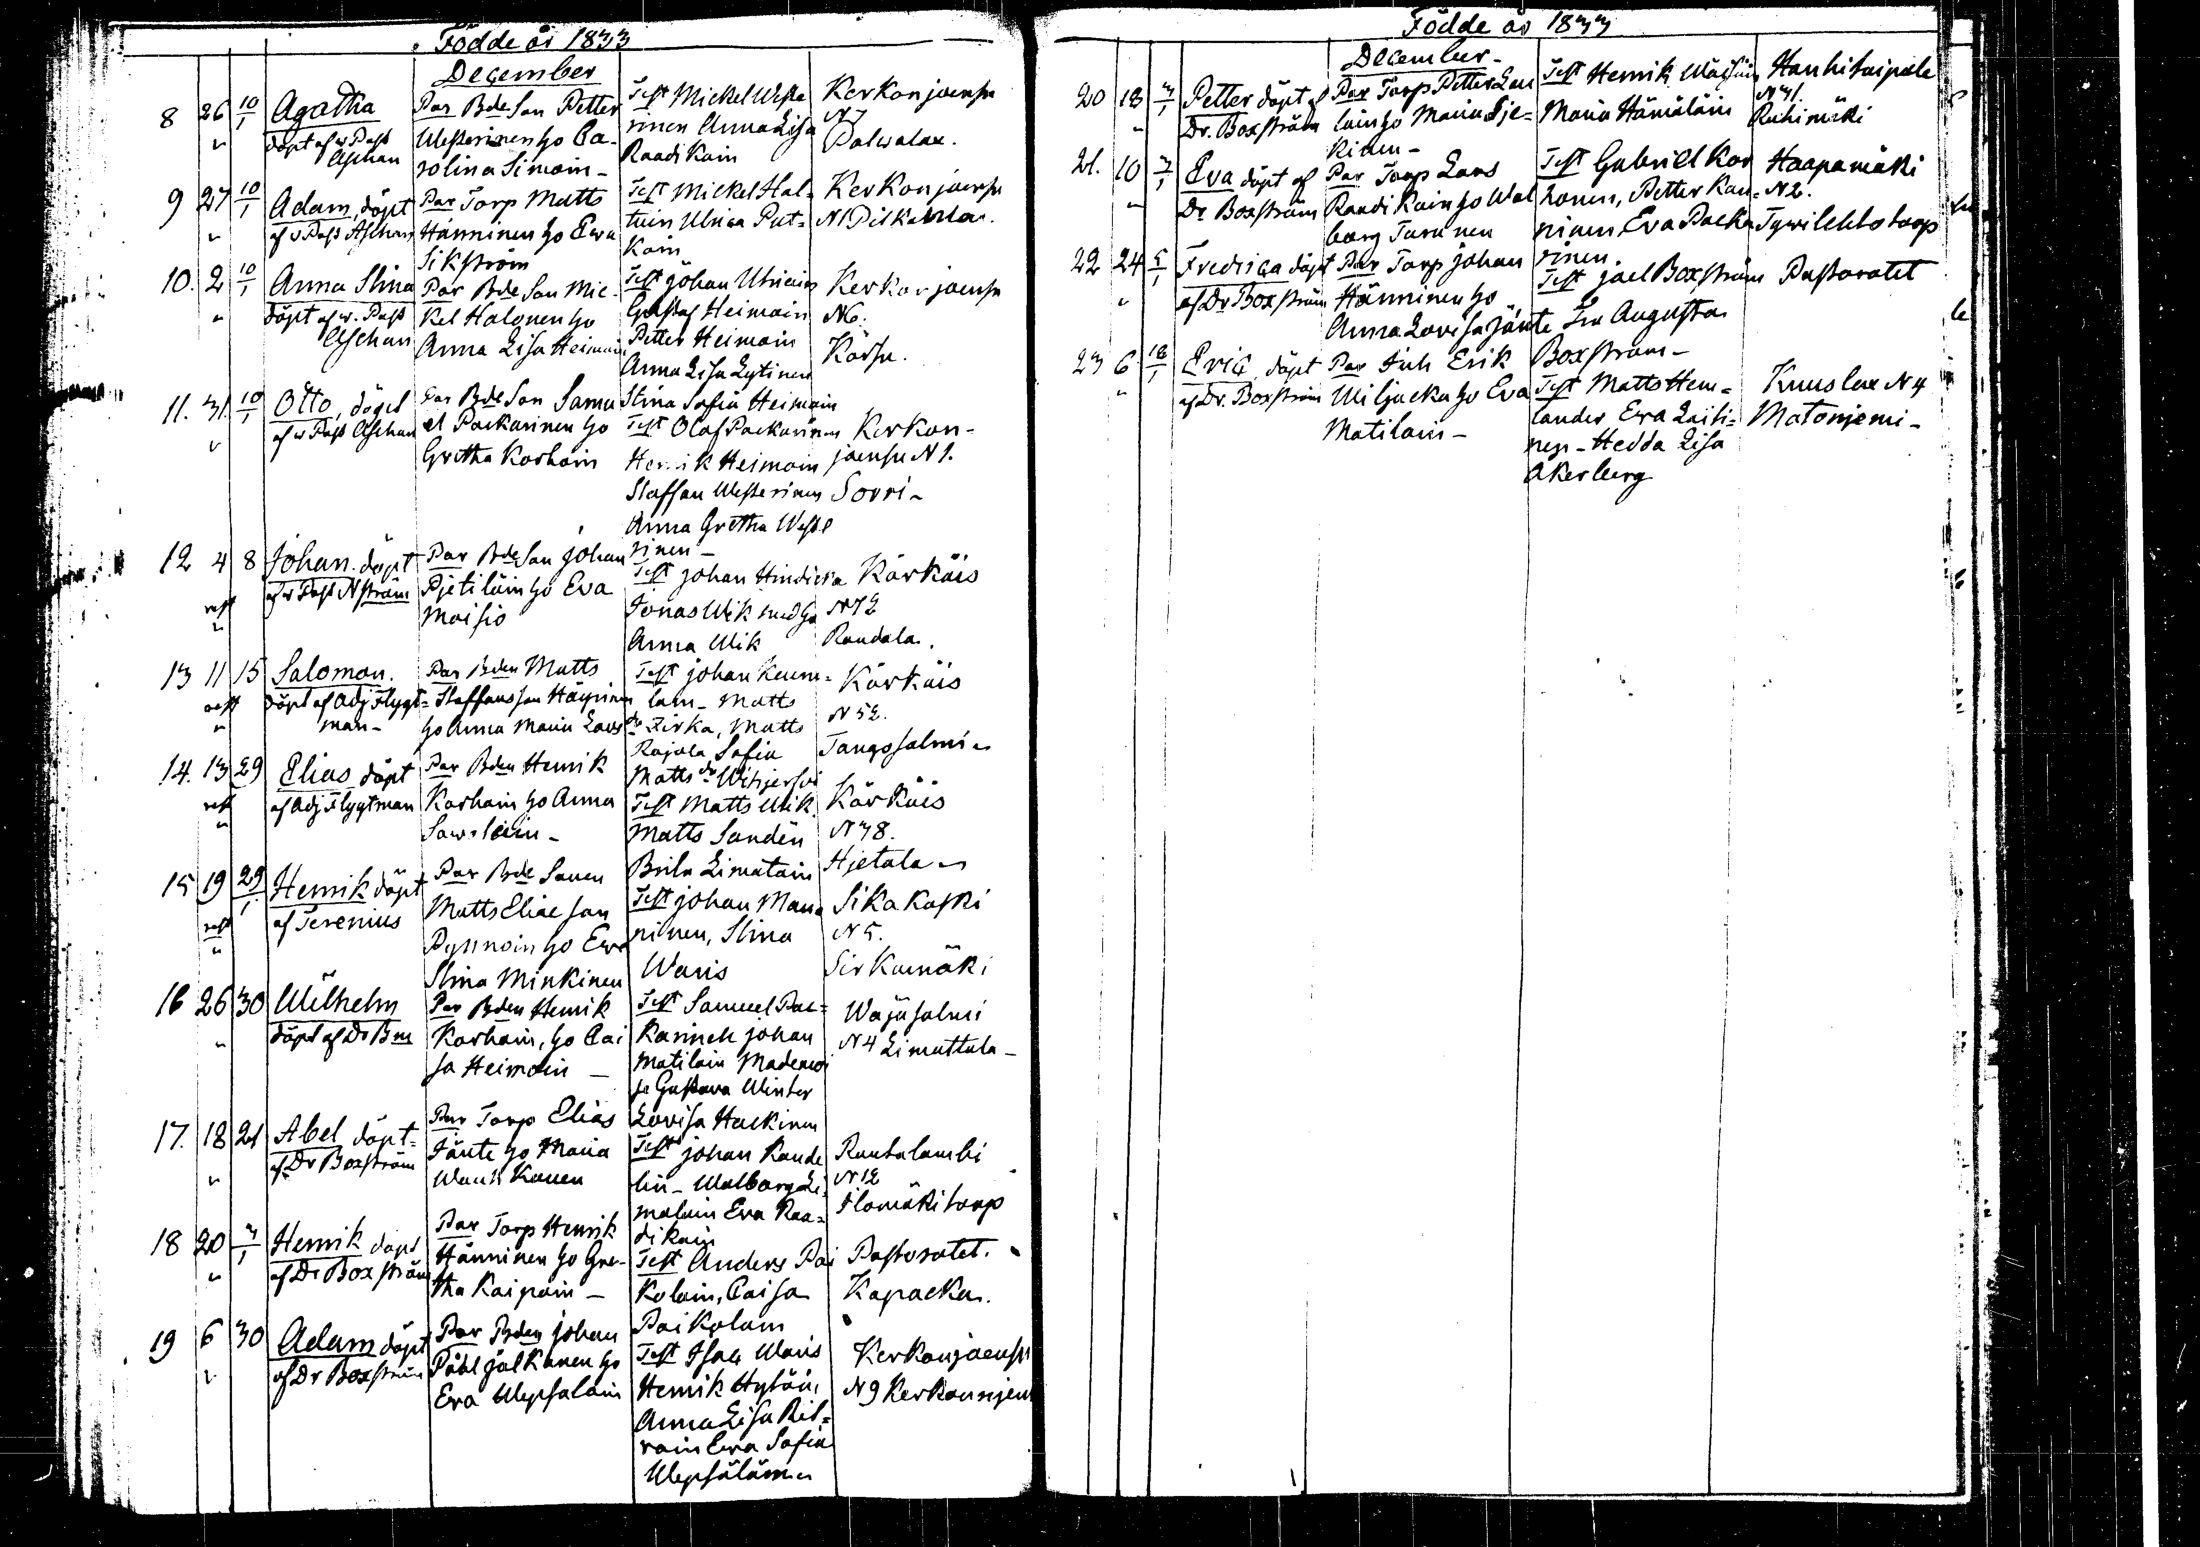 Födde år 1833
December
8 26 10/1 Agatha
döpt af v Past
Aschan
Par Bde Son Petter
Westerinen ho Ca-
rolina Simoin -
Test Mickel Weste
rinen Anna Lisa
Raadikain
Kerkonjoensu
N 7
Palwalax.
9 27 10/1 Adam, döpt
af v Past Aschan
Par Torp Matts
Hänninen ho Ewa
Sikström
Test Mickel Hal-
tuin Ulrica Put-
koin
Kerkonjoensu
N 1
10. 2 10/1 Anna Stina
döpt af v. Past
Aschan
Par Bde Son Mic-
kel Halonen ho
Anna Lisa Heimoin
Test Johan Utriain
Gustaf Heimoin
Petter Heimoin
Anna Lisa Lytinen
Stina Sofia Heimoin
Kerkonjoensu
N 6.
11. 31. 10/1 Otto, döpt
af v Past Aschan
Par Bde Son Samu
el Paekarinen ho
Gretha Korhoin
Test Olof Paekarinen
Henrik Heimoin
Staffan Westerinen
Anna Gretha Weste
rinen -
Kerkon-
joensu N 1.
Sorri -
12 4 8 Johan. döpt
af v Past Nström
Par Bde Son Johan
Pjetiläin ho Eva
Moisio
Test Johan Hindicka
Jonas Wik med ho
Anna Wik
Kärkäis
N 72
Randala.
13 11 15 Salomon.
döpt af Adj Flygt-
man -
Par Bden Matts
Staffansson Häyrinen
ho Anna Maria Lars dr
Test Johan Kum-
lain - Matts
Firka, Matts
Rajala Sofia
Matts dr Wihjerfvi
Kärkäis
N 52.
Tangssalmi -
14. 13 29 Elias döpt
af Adj Flygtman
Par Bden Henrik
Korhoin ho Anna
Sawolain -
Test Matts Wik
Matts Sandén
Brita Limatain
Kärkäis
N 38.
Hjetala -
15 19 29/1 Henrik döpt
af Terenius
Par Bde Sonen
Matts Eliae son
Pynnöin ho Ewa
Stina Minkinen
Test Johan Man-
ninen, Stina
Waris
Sikakoski
N 5.
Sirkamäki
16 26 30 Wilhelm
döpt af Dr Bm
Par Bden Henrik
Korhoin, ho Cai
sa Heimoin -
Test Samuel Pae-
karinen Johan
Matilain Mademoi
se Gustava Winter
Lovisa Hackinen
Wajasalmi
N 4 Limattala -
17. 18 21 Abel döpt-
af Dr Boxström
Par Torp Elias
Jänte ho Maria
Wauhkonen
Test Johan Rande
lin - Walborg Li-
matain Eva Raa-
dikain
Rautalambi
N 12
Ilomäki torp
18 20 3/1 Henrik döpt
af Dr Boxström
Par Torp Henrik
Hänninen ho Gre-
tha Kaipain -
Test Anders Pai
kolain, Caisa
Paikolain
Pastoratet.
Kapacka.
19 6 30 Adam döpt
af Dr Boxström
Par Bden Johan
Påhl Jalkanen ho
Eva Wepsäläin
Test Isac Waris
Henrik Hytöin,
Anna Lisa Rit-
vain Eva Sofia
Wepsäläinen
Kerkonjoensu
N 9
Födde år 1833
December -
20 13 3/1 Petter döpt af
Dr. Boxström
Par Torp Petter Lau
lain ho Maria Sje-
kinen -
Test Henrik
Maria Hämäläin
Hanhitaipale
N 31.
Riihimäki
21. 10 3/1 Eva döpt af
Dr Boxström
Par Torp Lars
Raadikain ho Wal
borg Turunen
Test Gabriel Kor
honen, Petter Kau-
ninen Eva Paeka
rinen.
Haapamäki
N 2.
Tyrilehto torp
22 24 5/1 Fredrica döpt
af Dr Boxström
Par Torp Johan
Hänninen ho
Anna Lovisa Jänte
Test Joel Boxström
Fru Augusta
Boxström -
Pastoratet
23 6 18/1 Eric, döpt
af Dr. Boxström
Par Inh Erik
Wiljacka ho Eva
Matilain -
Test Matts Hem-
lander Ewa Laiti-
nen - Hedda Lisa
Åkerberg
Kuuslax N 4
Matoniemi -